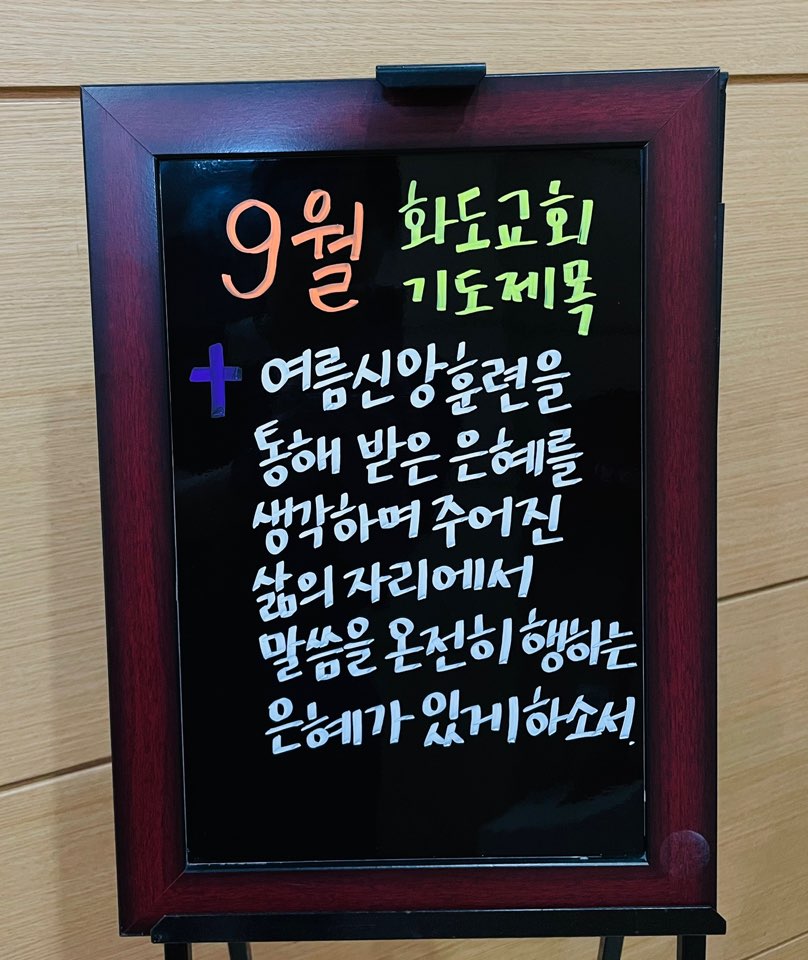 9월 화도교회
기도제목
여름신앙훈련을
통해 받은 은혜를
생각하며 주어진
삶의 자리에서
말씀을 온전히 행하는
은혜가 있게하소서.